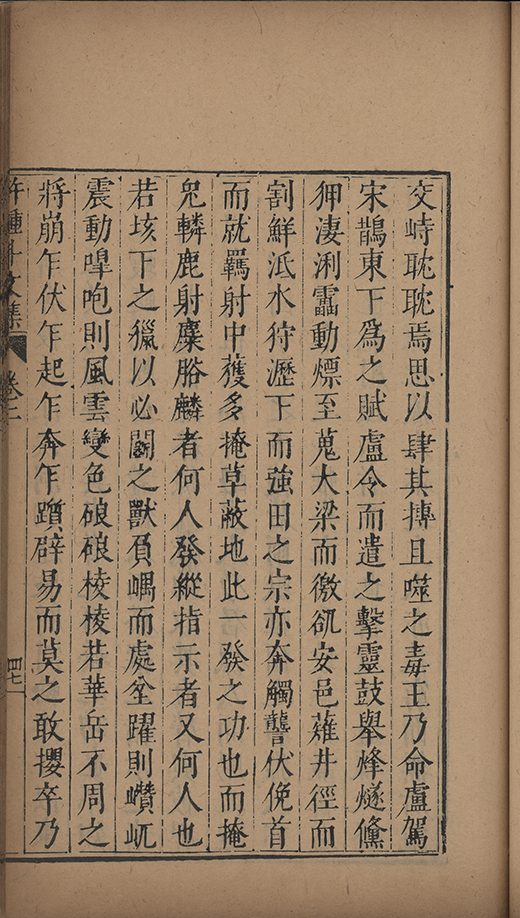 交峙耽耽焉思以肆其摶且噬之毒王乃命盧駕
宋鵲東下為之賦盧令而遣之擊靈鼓舉烽燧儵
狎淒浰靁動熛至蒐大梁而徼㰸安邑薙井徑而
割鮮泜水狩瀝下而強田之宗亦奔觸讋伏俛首
而就羈射中獲多掩草蔽地此一發之功也而掩
兔轔鹿射麋脗麟者何人發縱指示者又何人也
若垓下之獵以必鬬之獸負嵎而處坌躍則巑屼
震動嘷咆則風雲變色硠硠棱棱若華岳不周之
將崩乍伏乍起乍奔乍躓辟易而莫之敢攖卒乃
許鍾斗文集 卷二 四七